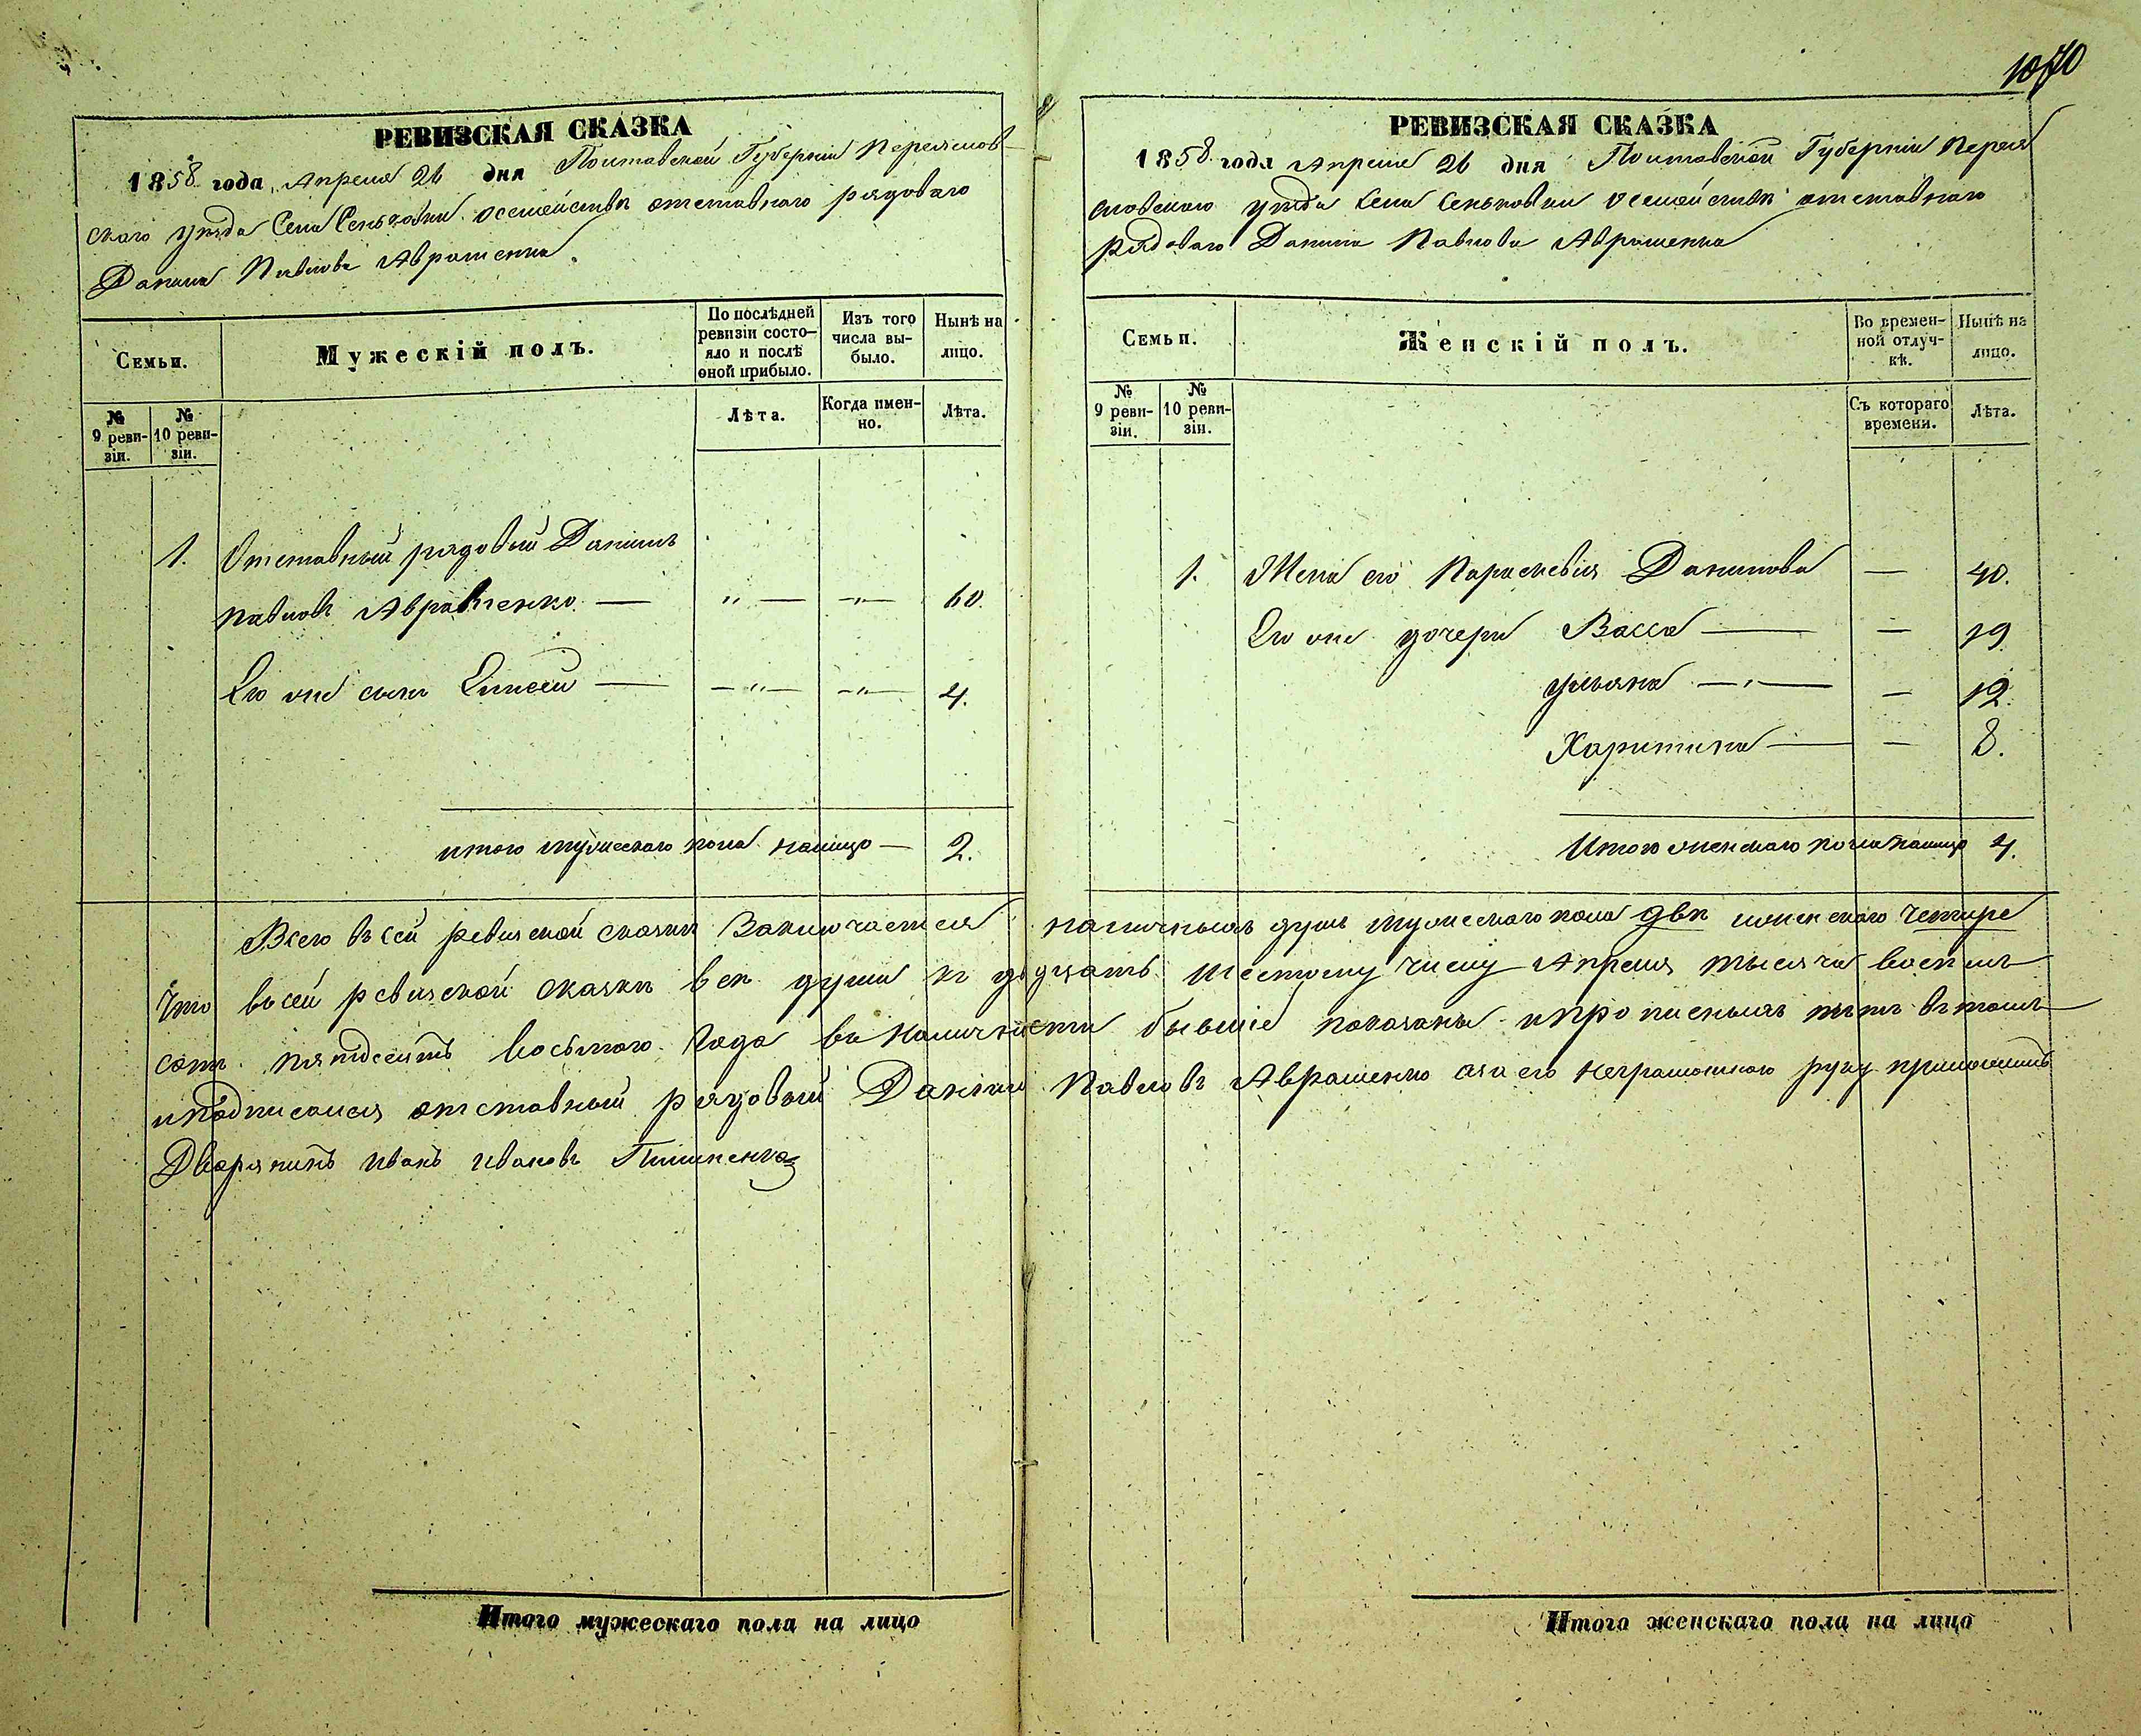 1070
РЕВИЗСКАЯ СКАЗКА
1858 года Апреля 26 дня Полтавской Губерніи Переяслов-
скаго уезда Села Сеньковки о семействе отставнаго рядоваго
Данила Павлова Аврашенка.
Семьи.
Мужескій полъ.
По послѣдней ревизіи состо-яло и послѣ оной прибыло.
Изъ того числа вы-было.
Нынѣ на лицо.
№ 9 реви-зіи.
№ 10 реви-зіи.
Лѣта.
Когда имен-но.
Лѣта.
1. Отставный рядовый Данилъ
Павловъ Аврашенко — „ — — „ — 60.
Его же сынъ Елисей — — „ — — „ — 4.
итого мужескаго пола налицо — 2.
РЕВИЗСКАЯ СКАЗКА
1858 года Апреля 26 дня Полтавской Губерніи Перея
словскаго уезда Села Сеньковки о семействе отставнаго
рядоваго Данила Павлова Аврашенка
Семьи.
Женскій полъ.
Во времен-ной отлуч-кѣ.
Нынѣ на лицо.
№ 9 реви-зіи.
№ 10 реви-зіи.
Съ котораго времени.
Лѣта.
1. Жена его Параскевія Данилова — 40.
Его же дочери Васса — — 19
Ульяна — — 12.
Харитина — — 8.
Итого женскаго пола налицо 4.
Всего въ сей ревизской сказки Заключается наличныхъ душъ мужескаго пола две женскаго четыре
Что въ сей ревизской сказки все души къ двадцать шестому числу Апреля тысяча восемь
сотъ пятдесятъ восьмого Года въ наличности бывшіе показаны и прописныхъ нетъ въ томъ
и подписался отставный рядовый Данило Павловъ Аврашенко а за его неграмотнаго руку приложилъ
Дворянинъ Иванъ Ивановъ
Итого мужескаго пола на лицо
Итого женскаго пола на лицо